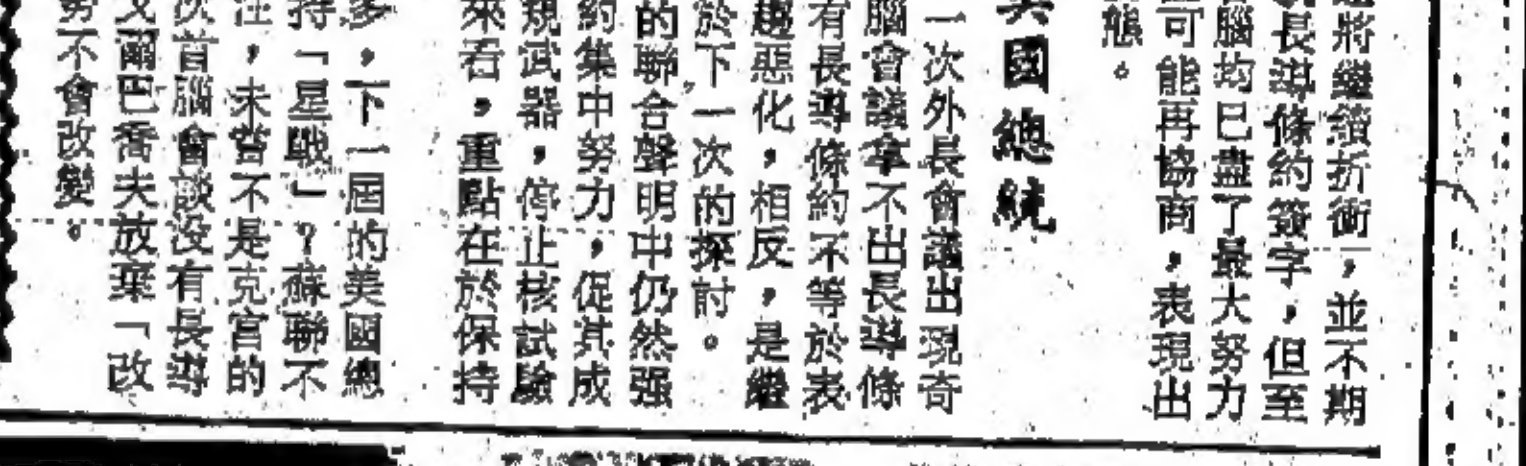 將繼續折衝，並不期
長導條約簽字，但至
腦均已盡了最大努力
可能再協商，表現出
態。
國總統
一次外長會議出現奇
腦會議拿不出長導條
有長導條約不等於表
趨惡化，相反，是繼
於下一次的探討。
的聯合聲明中仍然强
約集中努力，促其成
規武器，停止核試驗
來看，重點在於保持
多，下一屆的美國總
持「星戰」？蘇聯不
注，未嘗不是克宮的
次首腦會談没有長導
戈爾巴喬夫放棄「改
努不會改變。